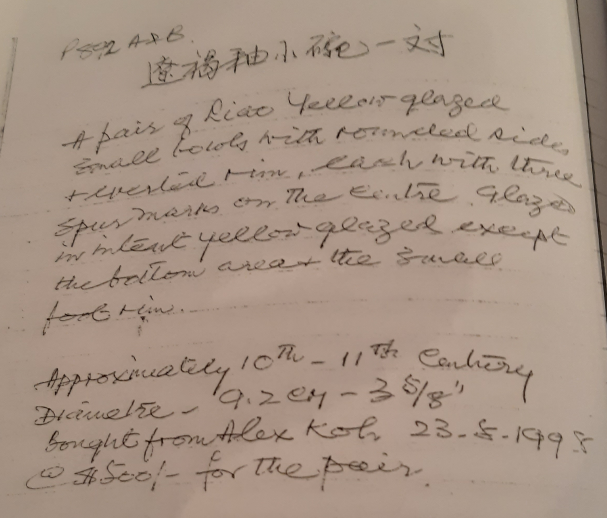 P592 A&B.
遼褐釉小碗一对
A pair of Liao Yellow glazed
small bowls with rounded sides
& everted rim, each with three
spur marks on the centre. Glazed
in yellow glazed except
the bottom area & the small
foot rim.
Approximately 10th - 11th Century
Diametre - 9.2 cm - 3 5/8"
bought from Alex Koh 23-5-1995
@ $500/- for the pair.